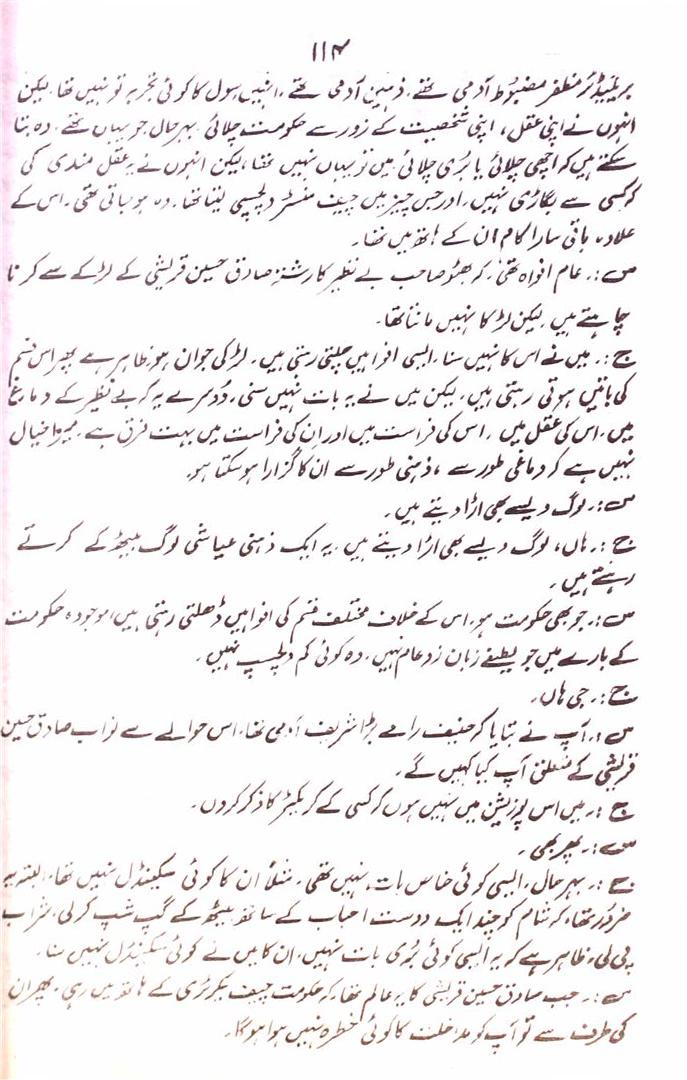 ۱۱۴
بریگیڈئر مظفر مضبوط آدمی تھے، ذہین آدمی تھے، انہیں سول کا کوئی تجربہ تو نہیں تھا، لیکن
انہوں نے اپنی عقل، اپنی شخصیت کے زور سے حکومت چلائی۔ بہرحال جو یہاں تھے، وہ بتا
سکتے ہیں کہ اچھی چلائی یا بری چلائی میں تو یہاں نہیں تھا، لیکن انہوں نے یہ عقل مندی کی
کہ کسی سے بگاڑی نہیں، اور جس چیز میں چیف منسٹر دلچسپی لیتا تھا۔ وہ ہو جاتی تھی۔ اس کے
علاوہ باقی سارا کام ان کے ہاتھ میں تھا۔
س:۔ عام افواہ تھی، کہ بھٹو صاحب بے نظیر کا رشتہ صادق حسین قریشی کے لڑکے سے کرنا
چاہتے ہیں، لیکن لڑکا نہیں مانتا تھا۔
ج:۔ میں نے اس کا نہیں سنا، ایسی افواہیں چلتی رہتی ہیں۔ لڑکی جوان ہو، ظاہر ہے پھر اس قسم
کی باتیں ہوتی رہتی ہیں، لیکن میں نے یہ بات نہیں سنی، دوسرے یہ کہ بے نظیر کے دماغ
میں، اس کی عقل میں، اس کی فراست میں اور ان کی فراست میں بہت فرق ہے، میرا خیال
نہیں ہے کہ دماغی طور سے، ذہنی طور سے ان کا گزارا ہو سکتا ہو۔
س:۔ لوگ ویسے بھی اڑا دیتے ہیں۔
ج:۔ ہاں، لوگ ویسے بھی اڑا دیتے ہیں، یہ ایک ذہنی عیاشی لوگ بیٹھ کے کرتے
رہتے ہیں۔
س:۔ جو بھی حکومت ہو، اس کے خلاف مختلف قسم کی افواہیں ڈھلتی رہتی ہیں، موجودہ حکومت
کے بارے میں جو لطیفے زبان زد عام نہیں، وہ کوئی کم دلچسپ نہیں۔
ج:۔ جی ہاں۔
س:۔ آپ نے بتایا کہ حنیف رامے بڑا شریف آدمی تھا، اس حوالے سے نواب صادق حسین
قریشی کے متعلق آپ کیا کہیں گے۔
ج:۔ میں اس پوزیشن میں نہیں ہوں کہ کسی کے کریکٹر کا ذکر کر دوں۔
س:۔ پھر بھی۔
ج:۔ بہرحال، ایسی کوئی خاص بات نہیں تھی۔ مثلاً ان کا کوئی سکینڈل نہیں تھا، البتہ یہ
ضرور تھا، کہ شام کو چند ایک دوست احباب کے ساتھ بیٹھ کے گپ شپ کر لی، شراب
پی لی، ظاہر ہے کہ یہ ایسی کوئی بڑی بات نہیں، ان کا میں نے کوئی سکینڈل نہیں سنا۔
س:۔ جب صادق حسین قریشی کا یہ عالم تھا، کہ حکومت چیف سیکرٹری کے ہاتھ میں رہی، پھر ان
کی طرف سے تو آپ کو مداخلت کا کوئی خطرہ نہیں ہوا ہو گا۔